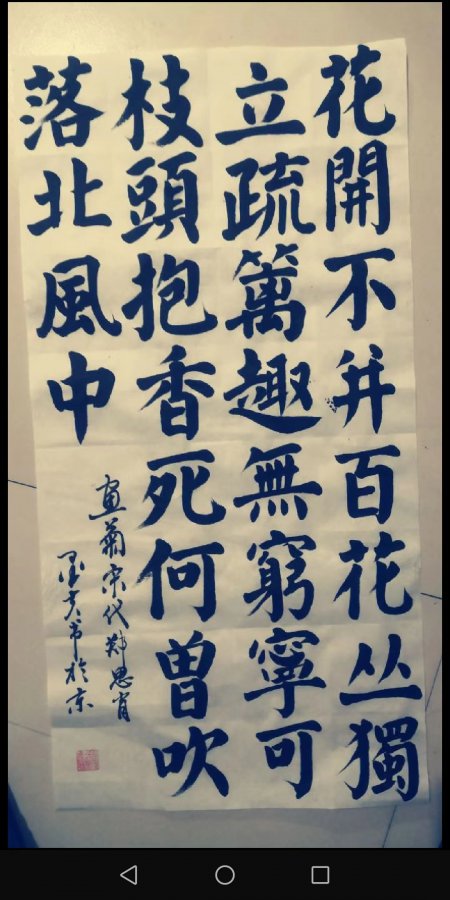 花開不并百花丛獨
立疏篱趣無窮寧可
枝頭抱香死何曾吹
落北風中
画菊宋代郑思肖
书於京